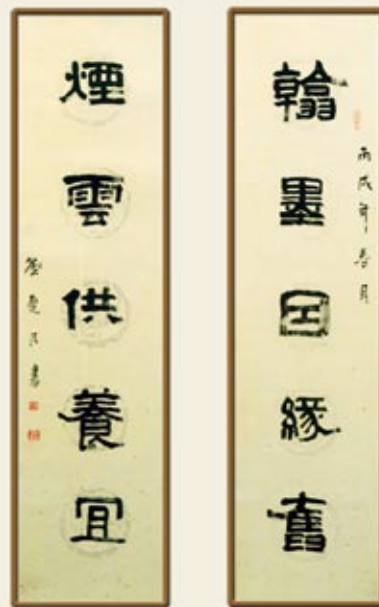 翰墨因緣舊
丙戌年春月
煙雲供養宜
書